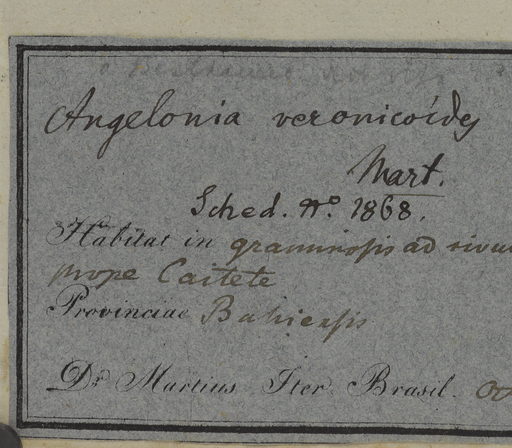 Angelonia veronicoides
Mart.
Sched. No. 1868.
Habitat in graminosis ad rivu
prope Caitete
Provinciae Bahiensis
Dr. Martius Iter Brasil.